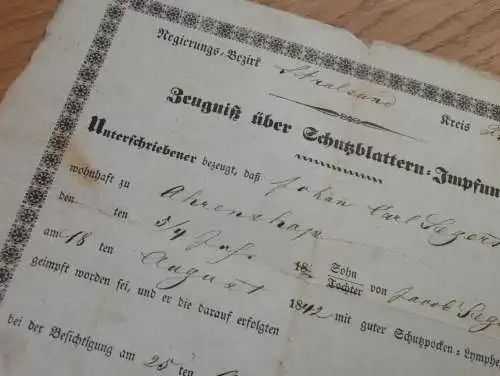 Regierungs-Bezirk Stralsund Kreis
Zeugniß über Schutzblattern-Impfun
Unterschriebener bezeugt, daß Johan Carl
wohnhaft zu Ahrenshop
den ten 54 Jahr 18 Sohn von Jacob
Tochter
am 18 ten August 1842 mit guter Schutzpocken-Lymphe
geimpft worden sei, und er die darauf erfolgten
bei der Besichtigung am 25 ten